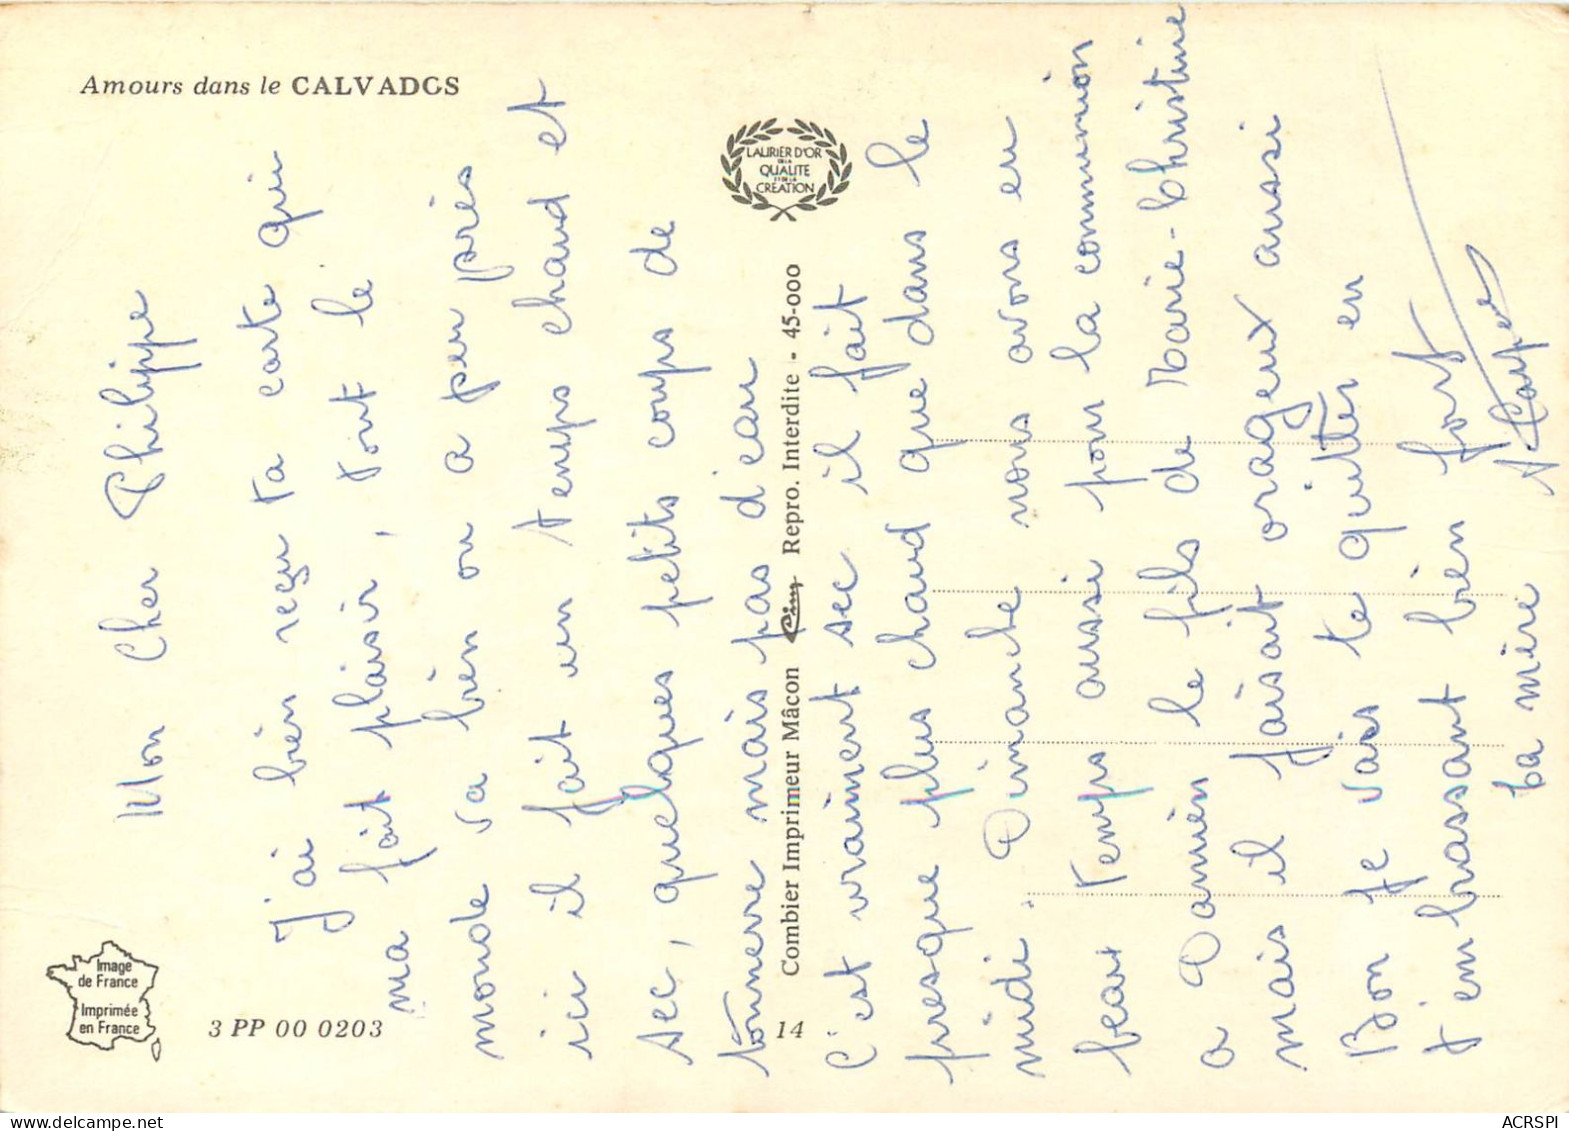 Amours dans le CALVADOS
LAURIER D'OR
DE LA
QUALITE
ET DE LA
CRÉATION
Image
de France
Imprimée
en France
3 PP 00 0203
14
Combier Imprimeur Mâcon Cim Repro. Interdite - 45-000
Mon Cher Philippe
J'ai bien reçu ta carte qui
ma fait plaisir, tout le
monde va bien ou a peu près
ici il fait un temps chaud et
sec, quelques petits coups de
tonnerre mais pas d'eau
C'est vraiment sec il fait
presque plus chaud que dans le
midi. Dimanche nous avons eu
beau temps aussi pour la communion
a Damien le fils de Marie-Christine
mais il faisait orageux aussi
Bon Je vais te quitter en
t'embrassant bien fort
ta mère
ACRSPI